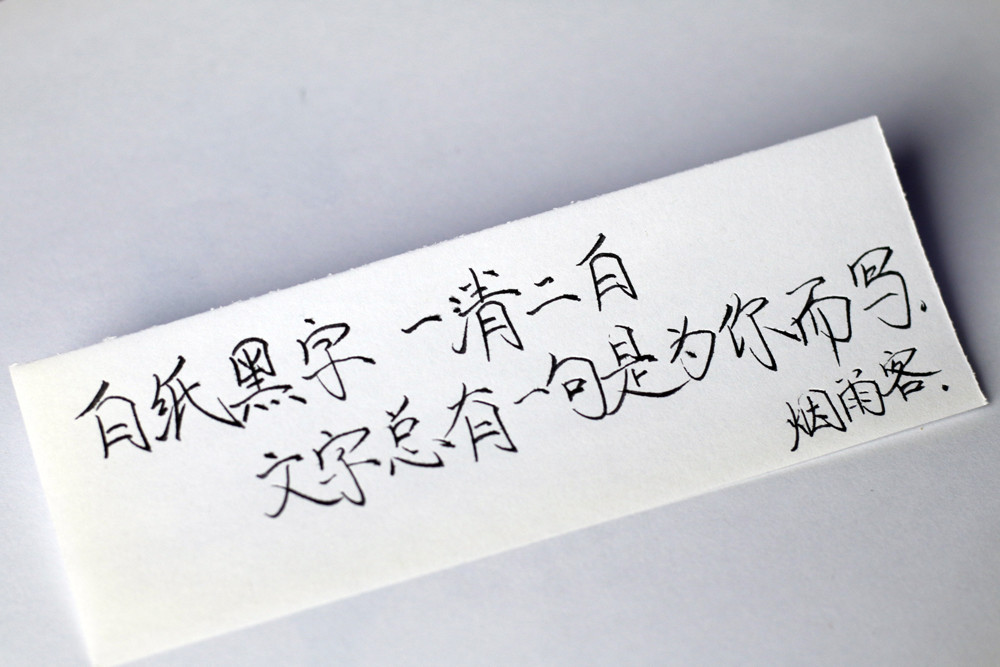 白纸黑字 一清二白
文字总有一句是为你而写.
烟雨客.